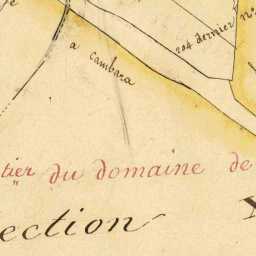 204 dernier n°
a Cambara
tier du domaine de
ection